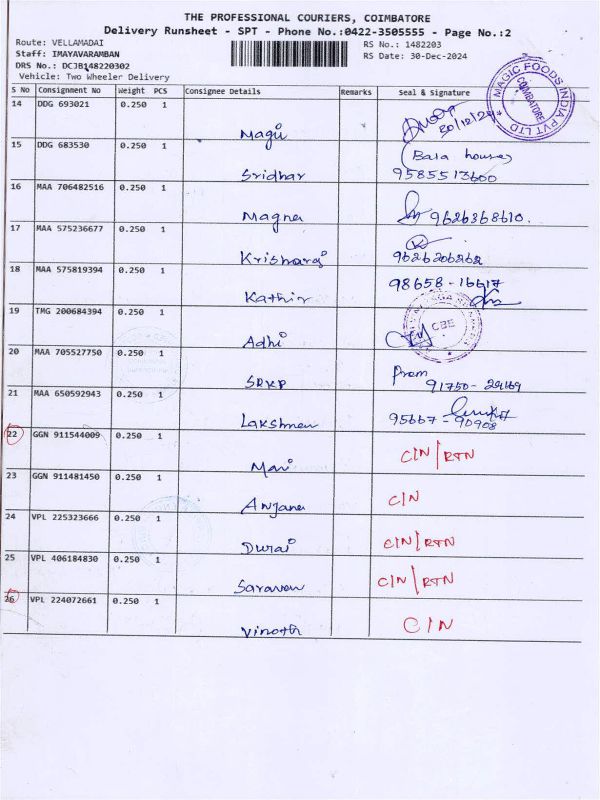 THE PROFESSIONAL COURIERS, COIMBATORE
Delivery Runsheet - SPT - Phone No.:0422-3505555 - Page No.:2
Route: VELLAMADAI
RS No.: 1482203
Staff: IMAYAVARAMBAN
RS Date: 30-Dec-2024
DRS No.: DCJB148220302
Vehicle: Two Wheeler Delivery
S No Consignment No Weight PCS Consignee Details Remarks Seal & Signature
14 DDG 693021 0.250 1 Magii 30/12/24
MAGIC FOODS INDIA PVT LTD COIMBATORE
15 DDG 683530 0.250 1 Sridhar (Bala house) 9585513600
16 MAA 706482516 0.250 1 Magna 9626368610.
17 MAA 575236677 0.250 1 Krishnaraj 9626206262
18 MAA 575819394 0.250 1 Kathir 98658-16617
19 TMG 200684394 0.250 1 Adhi CBE
20 MAA 705527750 0.250 1 SRKP Prem 91750-29169
21 MAA 650592943 0.250 1 Lakshman 95667-90908
22 GGN 911544009 0.250 1 Mari C/N/RTN
23 GGN 911481450 0.250 1 Anjana C/N
24 VPL 225323666 0.250 1 Durai C/N/RTN
25 VPL 406184830 0.250 1 Saravan C/N/RTN
26 VPL 224072661 0.250 1 Vinoth C/N